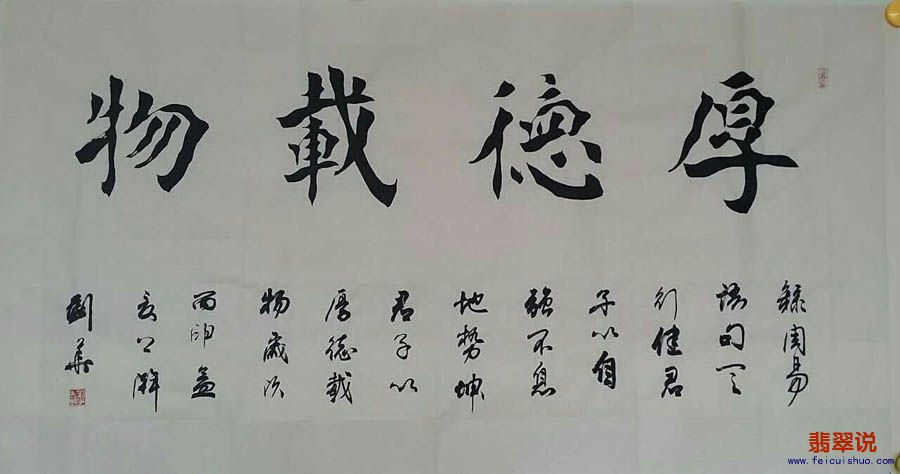 厚德載物
錄周易
語句天
行健君
子以自
強不息
地勢坤
君子以
厚德載
物歲次
丙申孟
夏
劉華
翡翠说
www.feicuishuo.com